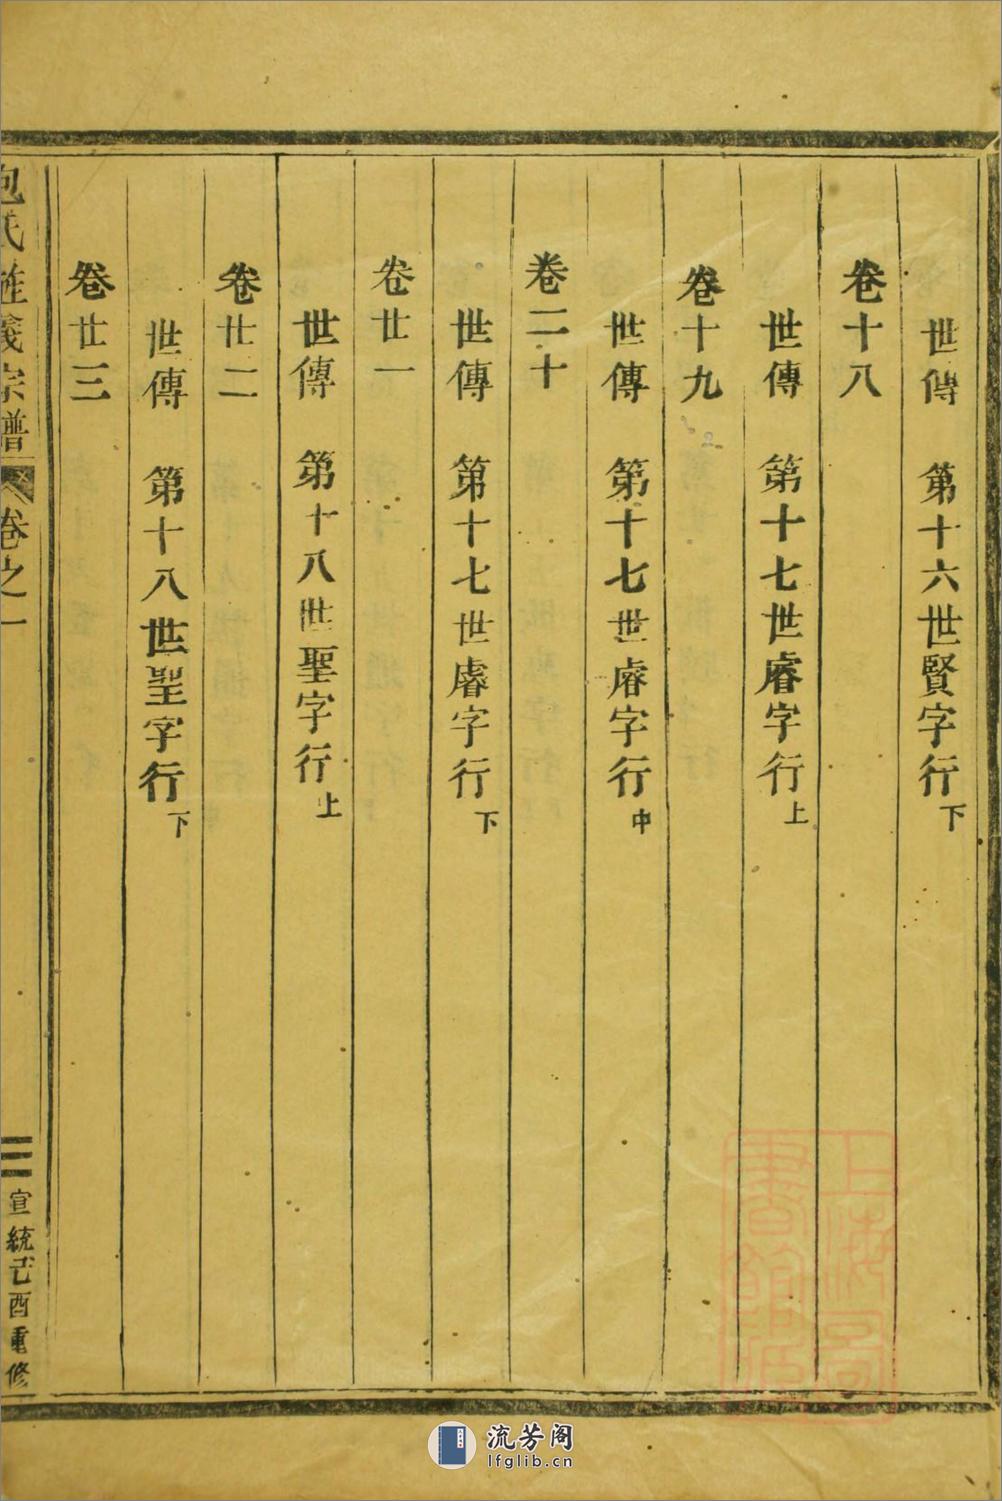 世傳 第十六世賢字行下
卷十八
世傳 第十七世睿字行上
卷十九
世傳 第十七世睿字行中
卷二十
世傳 第十七世睿字行下
卷廿一
世傳 第十八世聖字行上
卷廿二
世傳 第十八世聖字行下
卷廿三
包氏旌義宗譜 卷之一
宣統己酉重修
上海圖書館藏
流芳阁
lfglib.cn